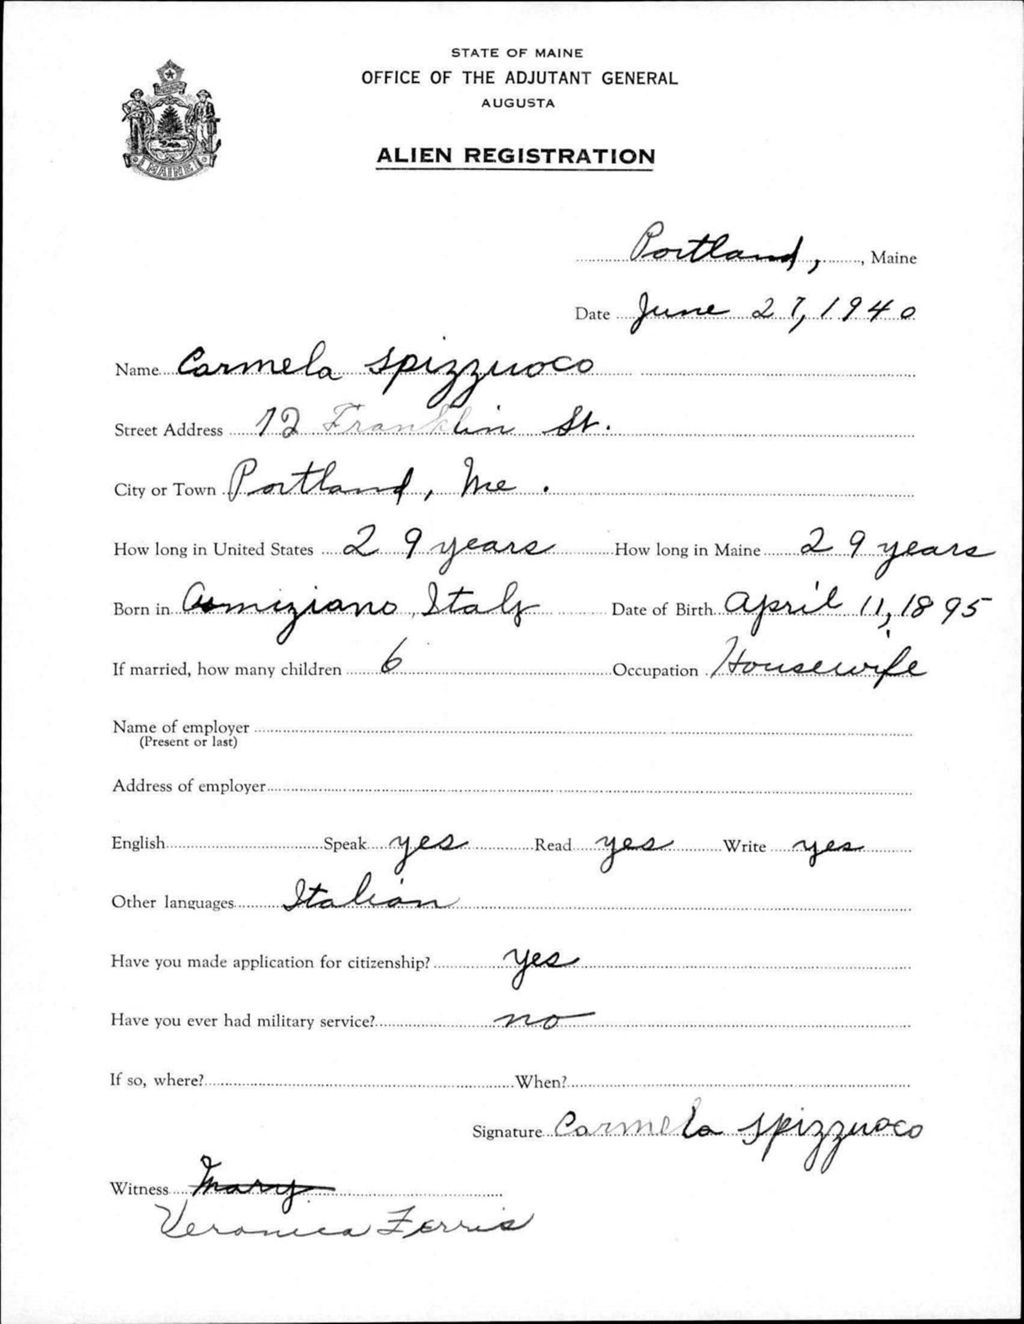 STATE OF MAINE
OFFICE OF THE ADJUTANT GENERAL
AUGUSTA
ALIEN REGISTRATION
MAINE
Portland, , Maine
Date June 27, 1940
Name Carmela Spizzuoco
Street Address 72 Franklin St.
City or Town Portland, Me.
How long in United States 29 years How long in Maine 29 years
Born in Italy Date of Birth April 11, 1895
If married, how many children 6 Occupation Housewife
Name of employer
(Present or last)
Address of employer
English Speak yes Read yes Write yes
Other languages Italian
Have you made application for citizenship? yes
Have you ever had military service? no
If so, where? When?
Signature Carmela Spizzuoco
Witness Mary
Veronica Ferris